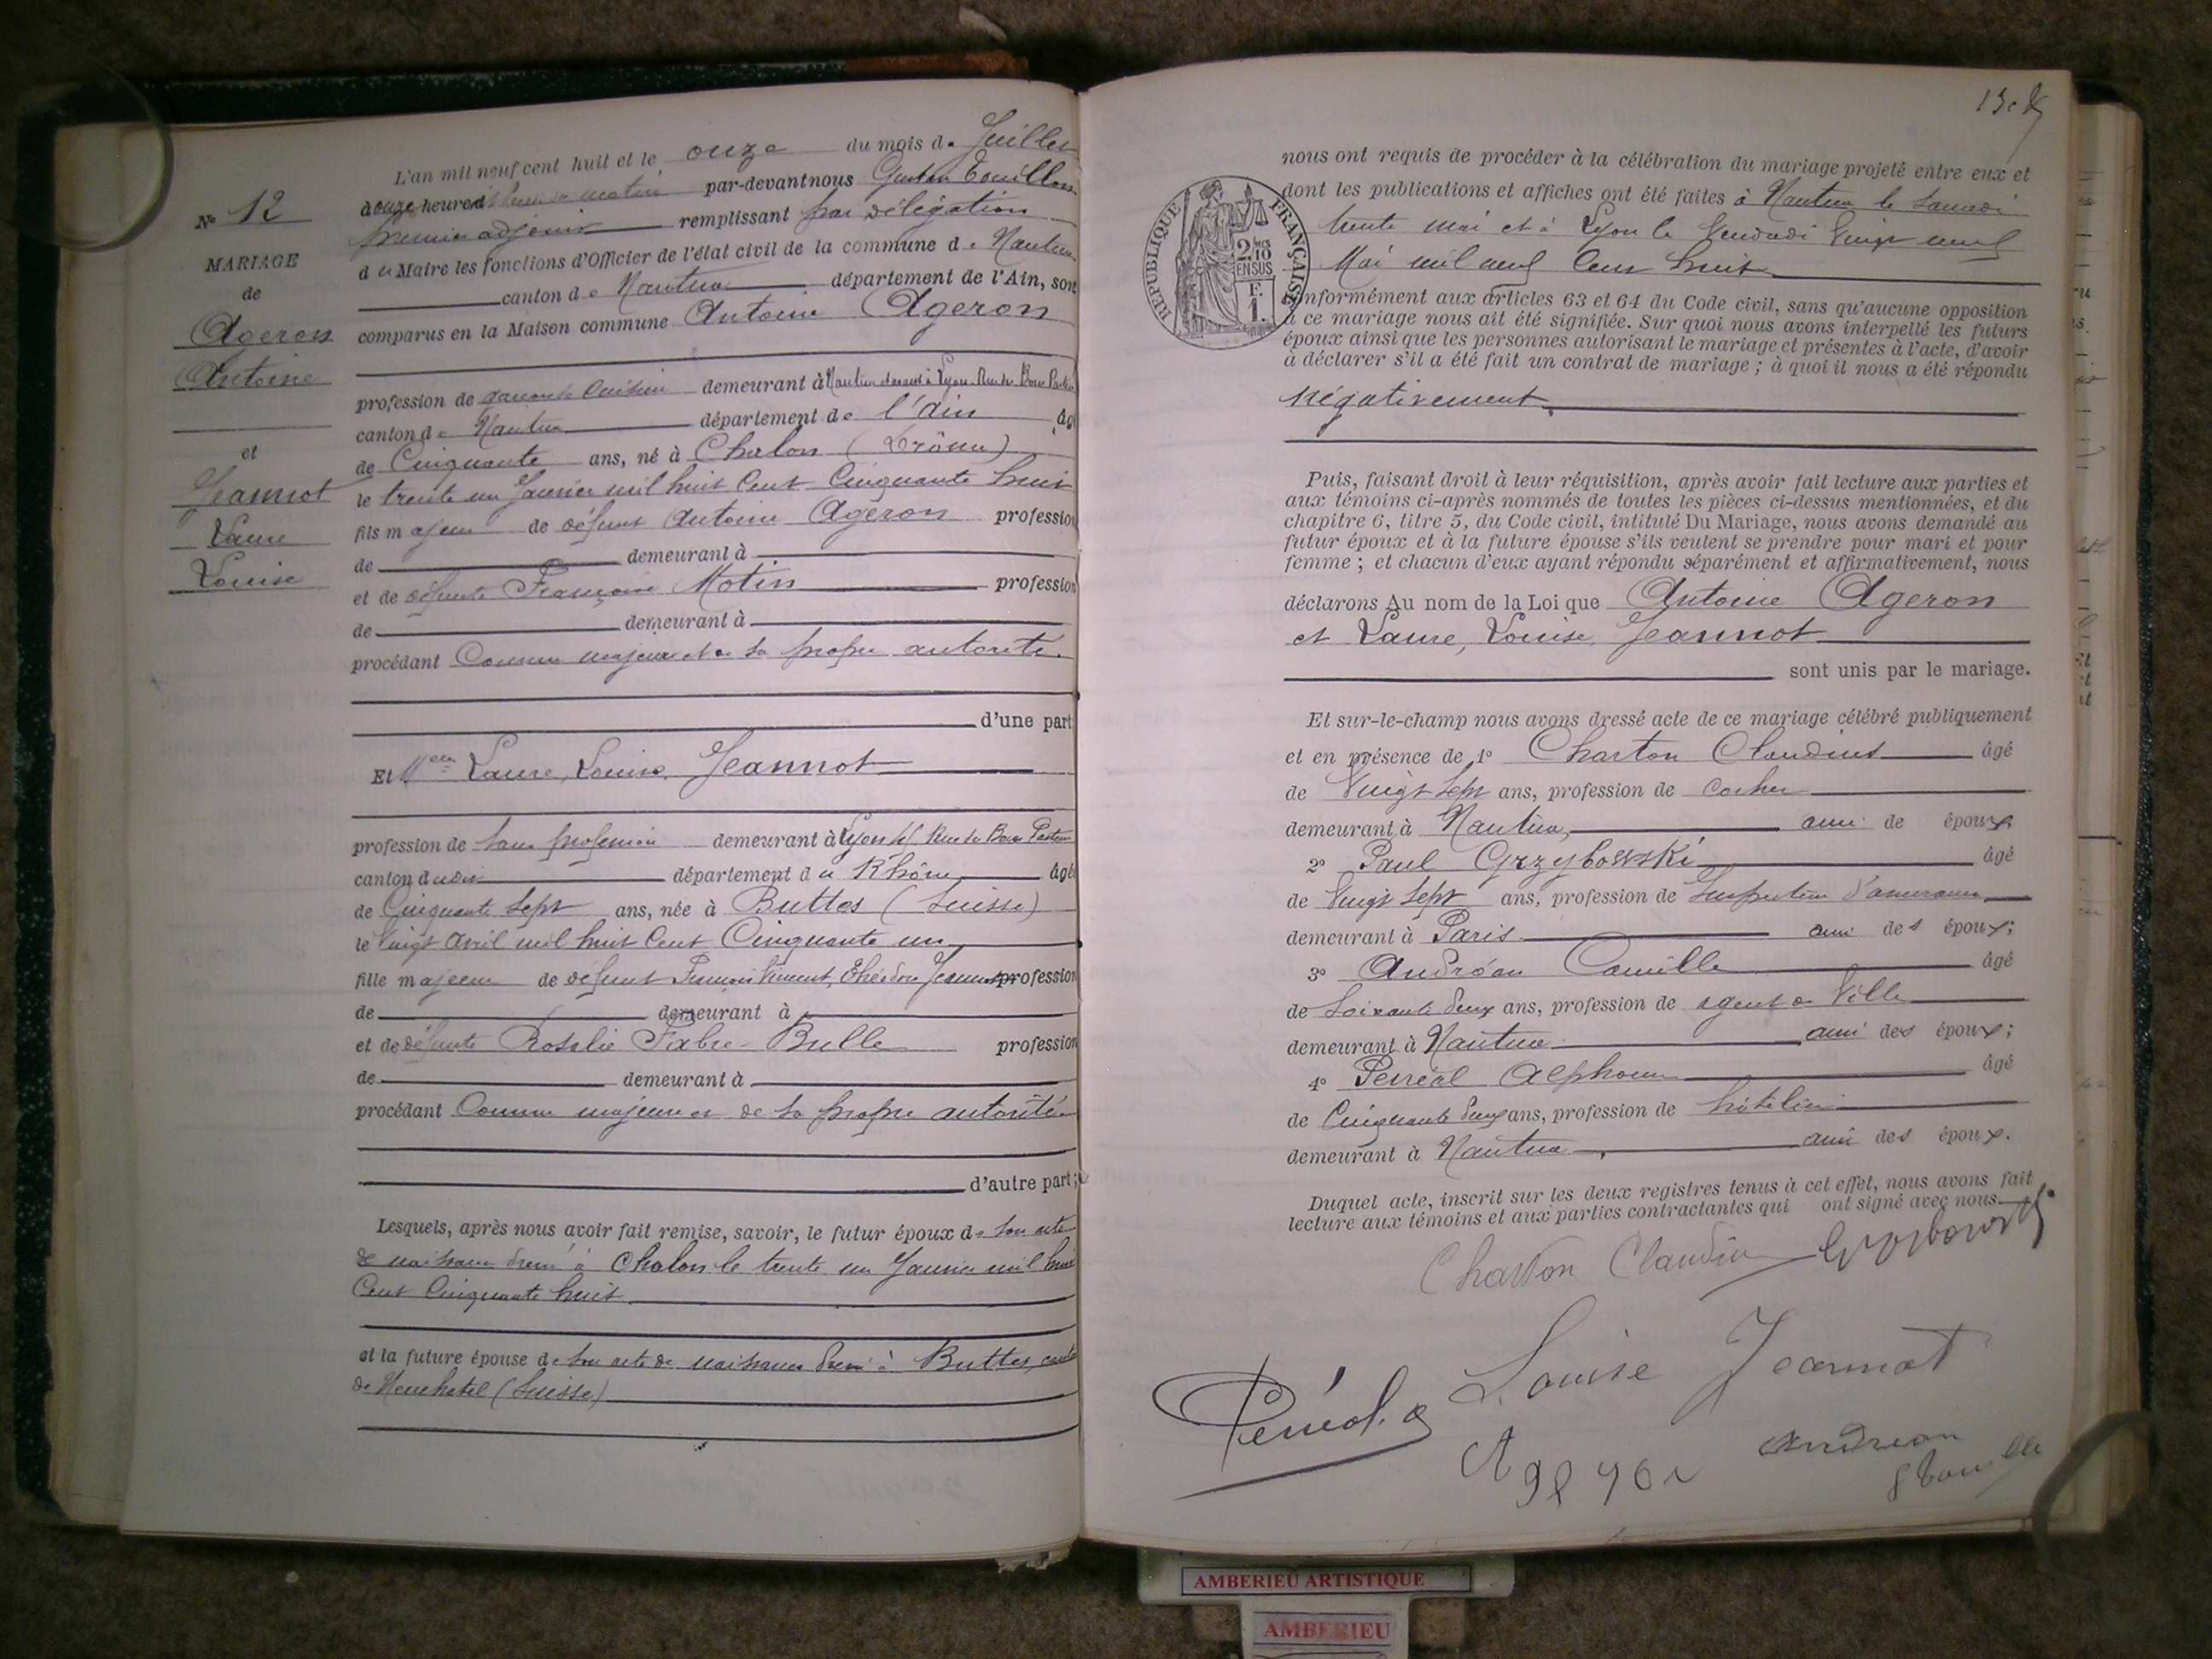 L'an mil neuf cent huit et le onze du mois de Juillet
à onze heures du matin par-devant nous Gustave Touillon
premier adjoint remplissant par délégation
du Maire les fonctions d'Officier de l'état civil de la commune de Nantua
canton de Nantua département de l'Ain, sont
comparus en la Maison commune Antoine Ageron
profession de garçon de cuisine demeurant à Nantua Lyon Rue du Bon Pasteur
canton de Nantua département de l'Ain âgé
de Cinquante ans, né à Chalon (Drôme)
le trente un Janvier mil huit Cent Cinquante huit
fils majeur de défunt Antoine Ageron profession
de demeurant à
et de défunte Françoise Motin profession
de demeurant à
procédant Comme majeur et de sa propre autorité
d'une part
Et Melle Laure, Louise, Jeannot
profession de sans profession demeurant à Lyon Rue du Bon Pasteur
canton dudit département du Rhône âgée
de Cinquante Sept ans, née à Buttes (Suisse)
le Vingt Avril mil huit Cent Cinquante un
fille majeure de défunt François Vincent, Théodore Jeannot profession
de demeurant à
et de défunte Rosalie Fabre-Bulle profession
de demeurant à
procédant Comme majeure et de sa propre autorité
d'autre part;
Lesquels, après nous avoir fait remise, savoir, le futur époux de son acte
de naissance dressé à Chalon le trente un Janvier mil huit
Cent Cinquante huit
et la future épouse de son acte de naissance dressé à Buttes, canton
de Neuchatel (Suisse)
N° 12
MARIAGE
de
Ageron
Antoine
et
Jeannot
Laure
Louise
nous ont requis de procéder à la célébration du mariage projeté entre eux et
dont les publications et affiches ont été faites à Nantua le Samedi
trente mai et à Lyon le Vendredi Vingt neuf
Mai mil neuf Cent huit
conformément aux articles 63 et 64 du Code civil, sans qu'aucune opposition
à ce mariage nous ait été signifiée. Sur quoi nous avons interpellé les futurs
époux ainsi que les personnes autorisant le mariage et présentes à l'acte, d'avoir
à déclarer s'il a été fait un contrat de mariage ; à quoi il nous a été répondu
négativement.
RÉPUBLIQUE FRANÇAISE
2/10 EN SUS
F.
1.
Puis, faisant droit à leur réquisition, après avoir fait lecture aux parties et
aux témoins ci-après nommés de toutes les pièces ci-dessus mentionnées, et du
chapitre 6, titre 5, du Code civil, intitulé Du Mariage, nous avons demandé au
futur époux et à la future épouse s'ils veulent se prendre pour mari et pour
femme ; et chacun d'eux ayant répondu séparément et affirmativement, nous
déclarons Au nom de la Loi que Antoine Ageron
et Laure, Louise, Jeannot
sont unis par le mariage.
Et sur-le-champ nous avons dressé acte de ce mariage célébré publiquement
et en présence de 1° Charton Claudius âgé
de Vingt Sept ans, profession de Cocher
demeurant à Nantua, ami de époux
2° Paul Grzybowski âgé
de Vingt Sept ans, profession de Inspecteur d'assurances
demeurant à Paris ami des époux;
3° Andréan Camille âgé
de Soixante deux ans, profession de agent de Ville
demeurant à Nantua ami des époux;
4° Perréal Alphonse âgé
de Cinquante deux ans, profession de hôtelier
demeurant à Nantua ami des époux.
Duquel acte, inscrit sur les deux registres tenus à cet effet, nous avons fait
lecture aux témoins et aux parties contractantes qui ont signé avec nous
Charton Claudius Grzybowski
Louise Jeannot
Perréal. a
Ageron
Andrean
AMBERIEU ARTISTIQUE
AMBERIEU